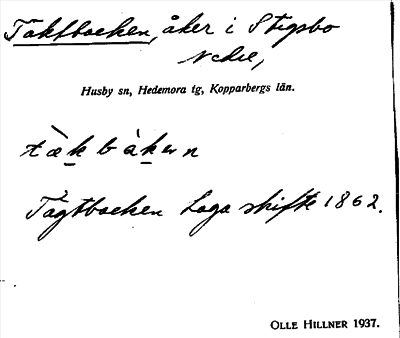 Täktbacken, åker i Stigsbo
Husby sn, Hedemora tg, Kopparbergs län.
tæ̀kbàkɐn
Tägtbacken Laga skifte 1862.
OLLE HILLNER 1937.